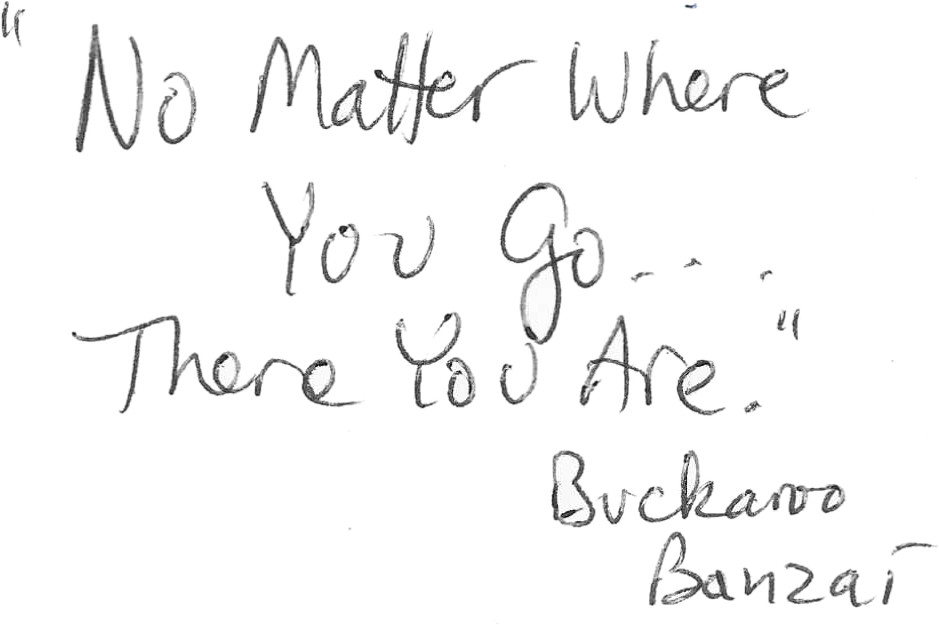 "No Matter Where
You Go...
There You Are."
Buckaroo
Banzai